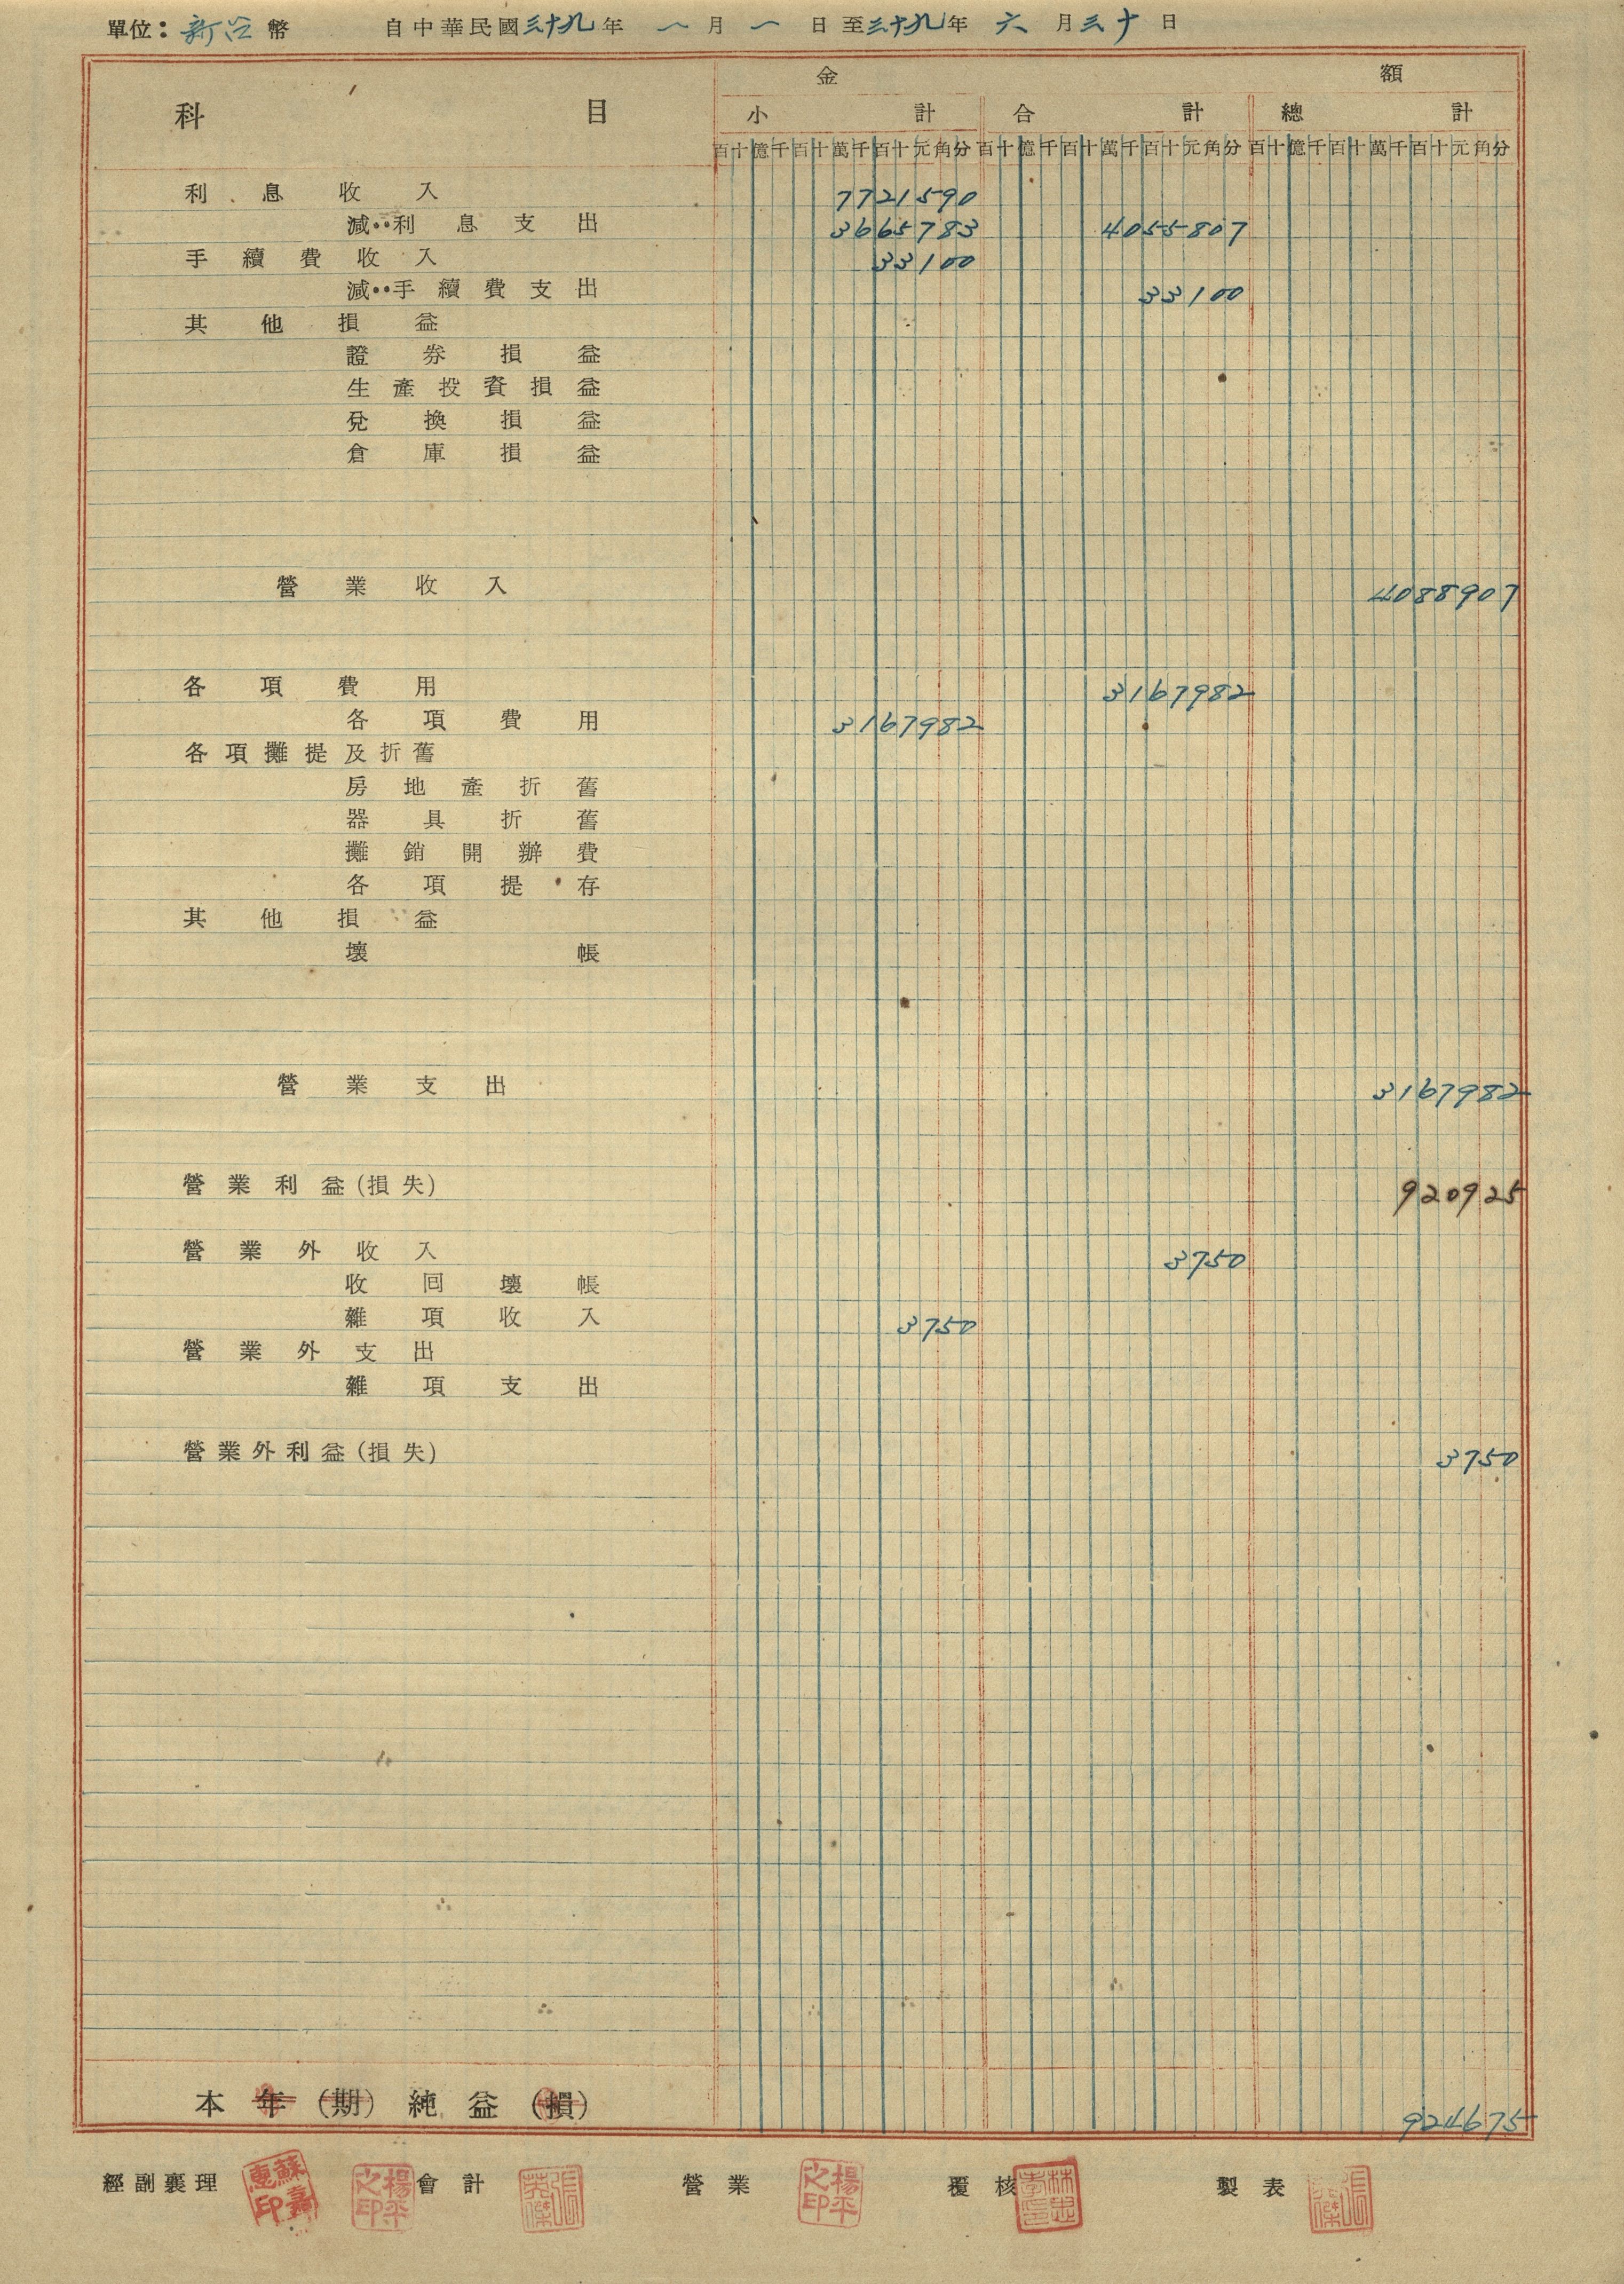 單位：新台幣 自中華民國三十九年一月一日至三十九年六月三十日
金額
科目 小計 合計 總計
百十億千百十萬千百十元角分 百十億千百十萬千百十元角分 百十億千百十萬千百十元角分
利息收入 7721590
減：利息支出 3665783 4055807
手續費收入 33100
減：手續費支出 33100
其他損益
證券損益
生產投資損益
兌換損益
倉庫損益
營業收入 4088907
各項費用 3167982
各項費用 3167982
各項攤提及折舊
房地產折舊
器具折舊
攤銷開辦費
各項提存
其他損益
壞帳
營業支出 3167982
營業利益(損失) 920925
營業外收入 3750
收回壞帳
雜項收入 3750
營業外支出
雜項支出
營業外利益(損失) 3750
本年(期)純益(損) 924675
經副襄理 會計 營業 覆核 製表
楊平之印 楊平之印